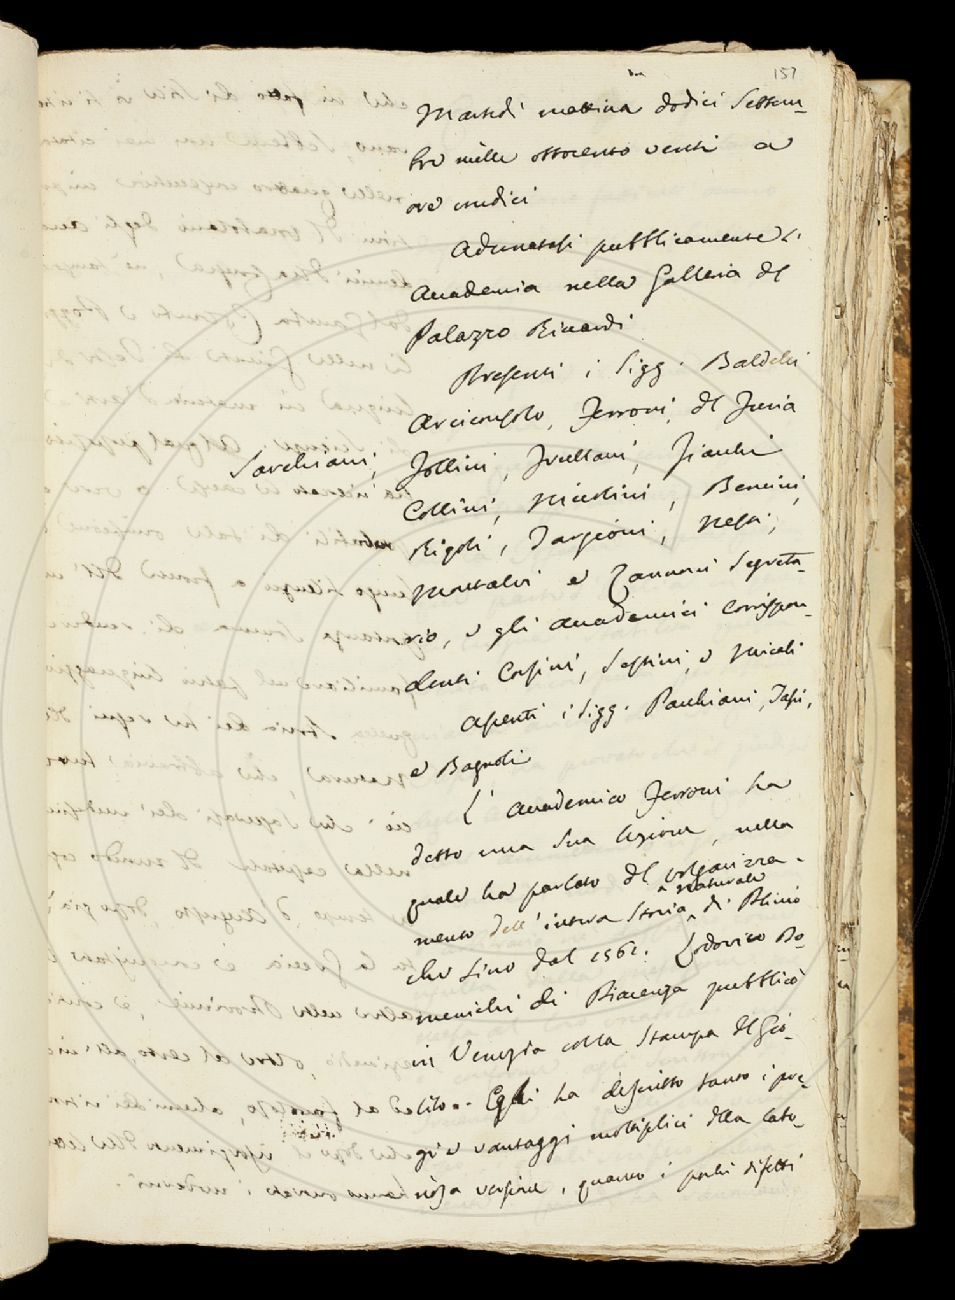 157
Martedì mattina dodici Settem-
bre mille ottocento venti a
ore undici
Adunatasi pubblicamente l'
Accademia nella Galleria del
Palazzo Riccardi
Presenti i Sigg. Baldelli
Arciconsolo, Ferroni, del Furia
Sarchiani, Follini, Frullani, Fiacchi
Collini, Niccolini, Bencini,
Rigoli, Targioni, Nesti,
Montalvi e Zannoni Segreta-
rio, e gli Accademici corrispon-
denti Corsini, Sestini, e Micali
Assenti i Sigg. Pacchiani, Tassi,
e Bagnoli
L'Accademico Ferroni ha
detto una sua lezione, nella
quale ha parlato del volgarizza-
mento dell'intera Storia naturale di Plinio
che sino dal 1561. Lodovico Do-
menichi di Piacenza pubblicò
in Venezia colla stampa del Gio-
lito. Egli ha descritto tanto i pre-
gi e vantaggi moltiplici della labo-
riosa versione, quanto i pochi difetti